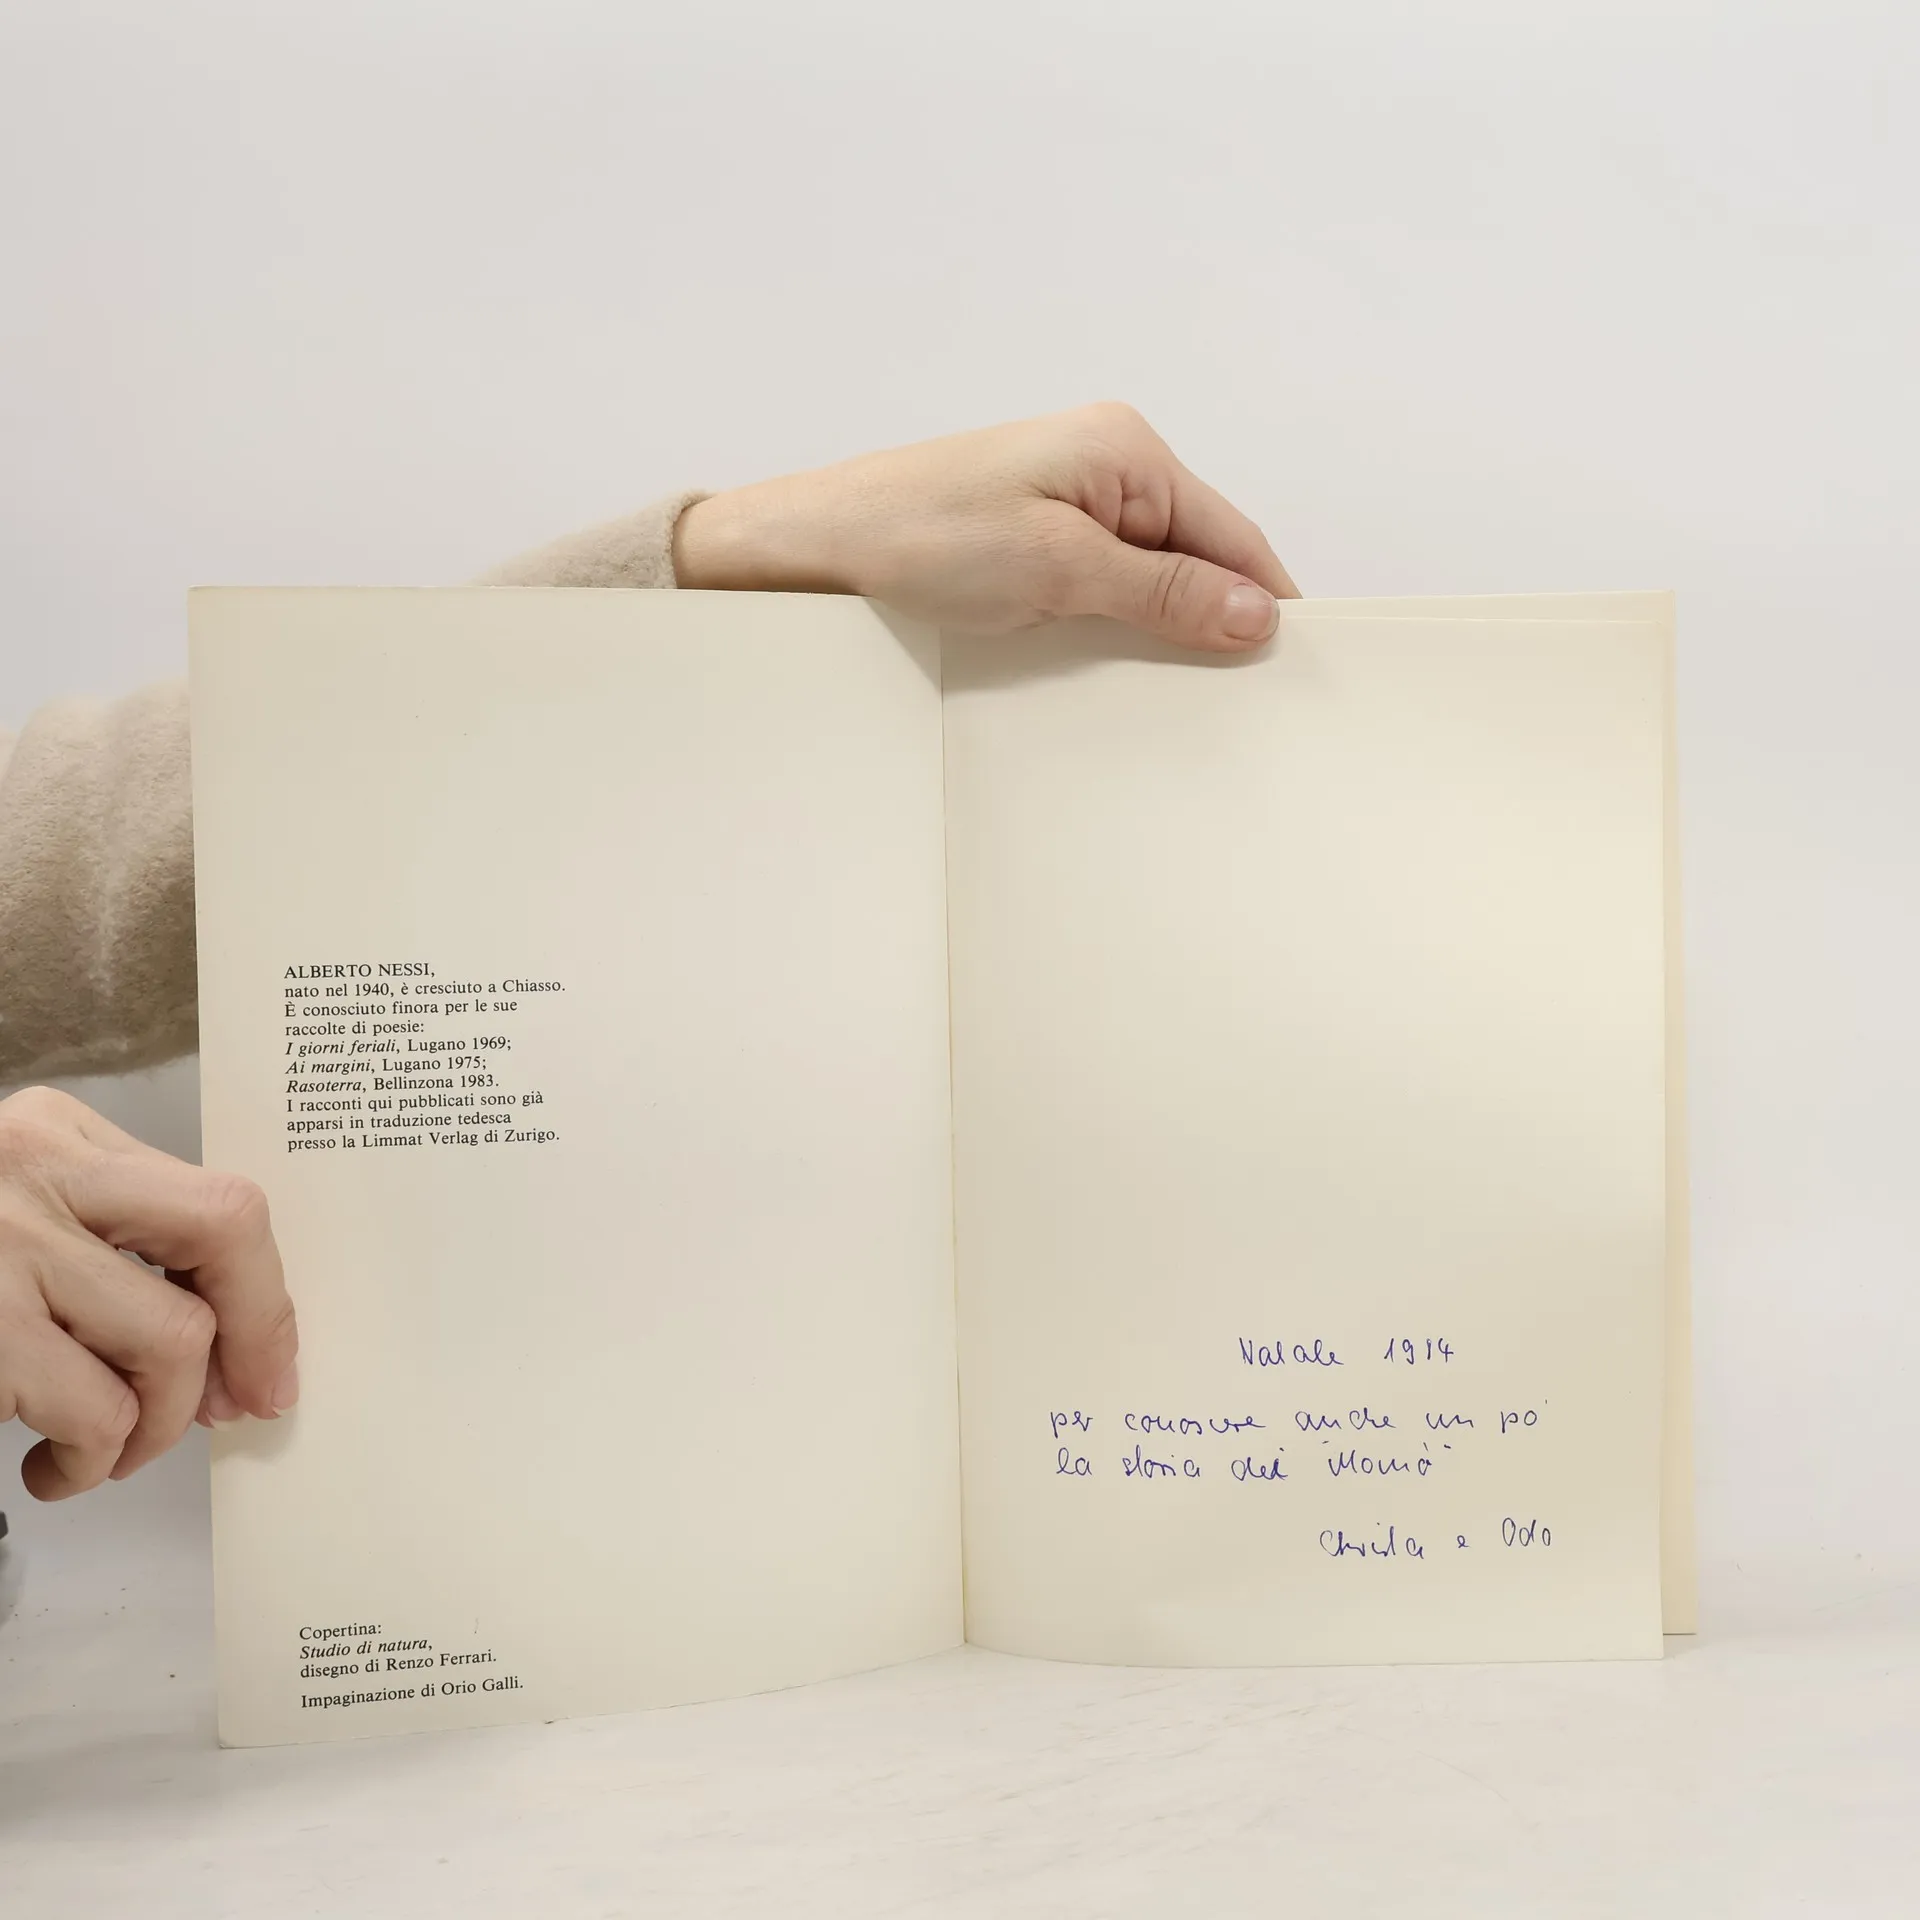 ALBERTO NESSI,
nato nel 1940, è cresciuto a Chiasso.
È conosciuto finora per le sue
raccolte di poesie:
I giorni feriali, Lugano 1969;
Ai margini, Lugano 1975;
Rasoterra, Bellinzona 1983.
I racconti qui pubblicati sono già
apparsi in traduzione tedesca
presso la Limmat Verlag di Zurigo.
Copertina:
Studio di natura,
disegno di Renzo Ferrari.
Impaginazione di Orio Galli.
Natale 1984
per conoscere anche un po'
la storia dei
Christa e Odo